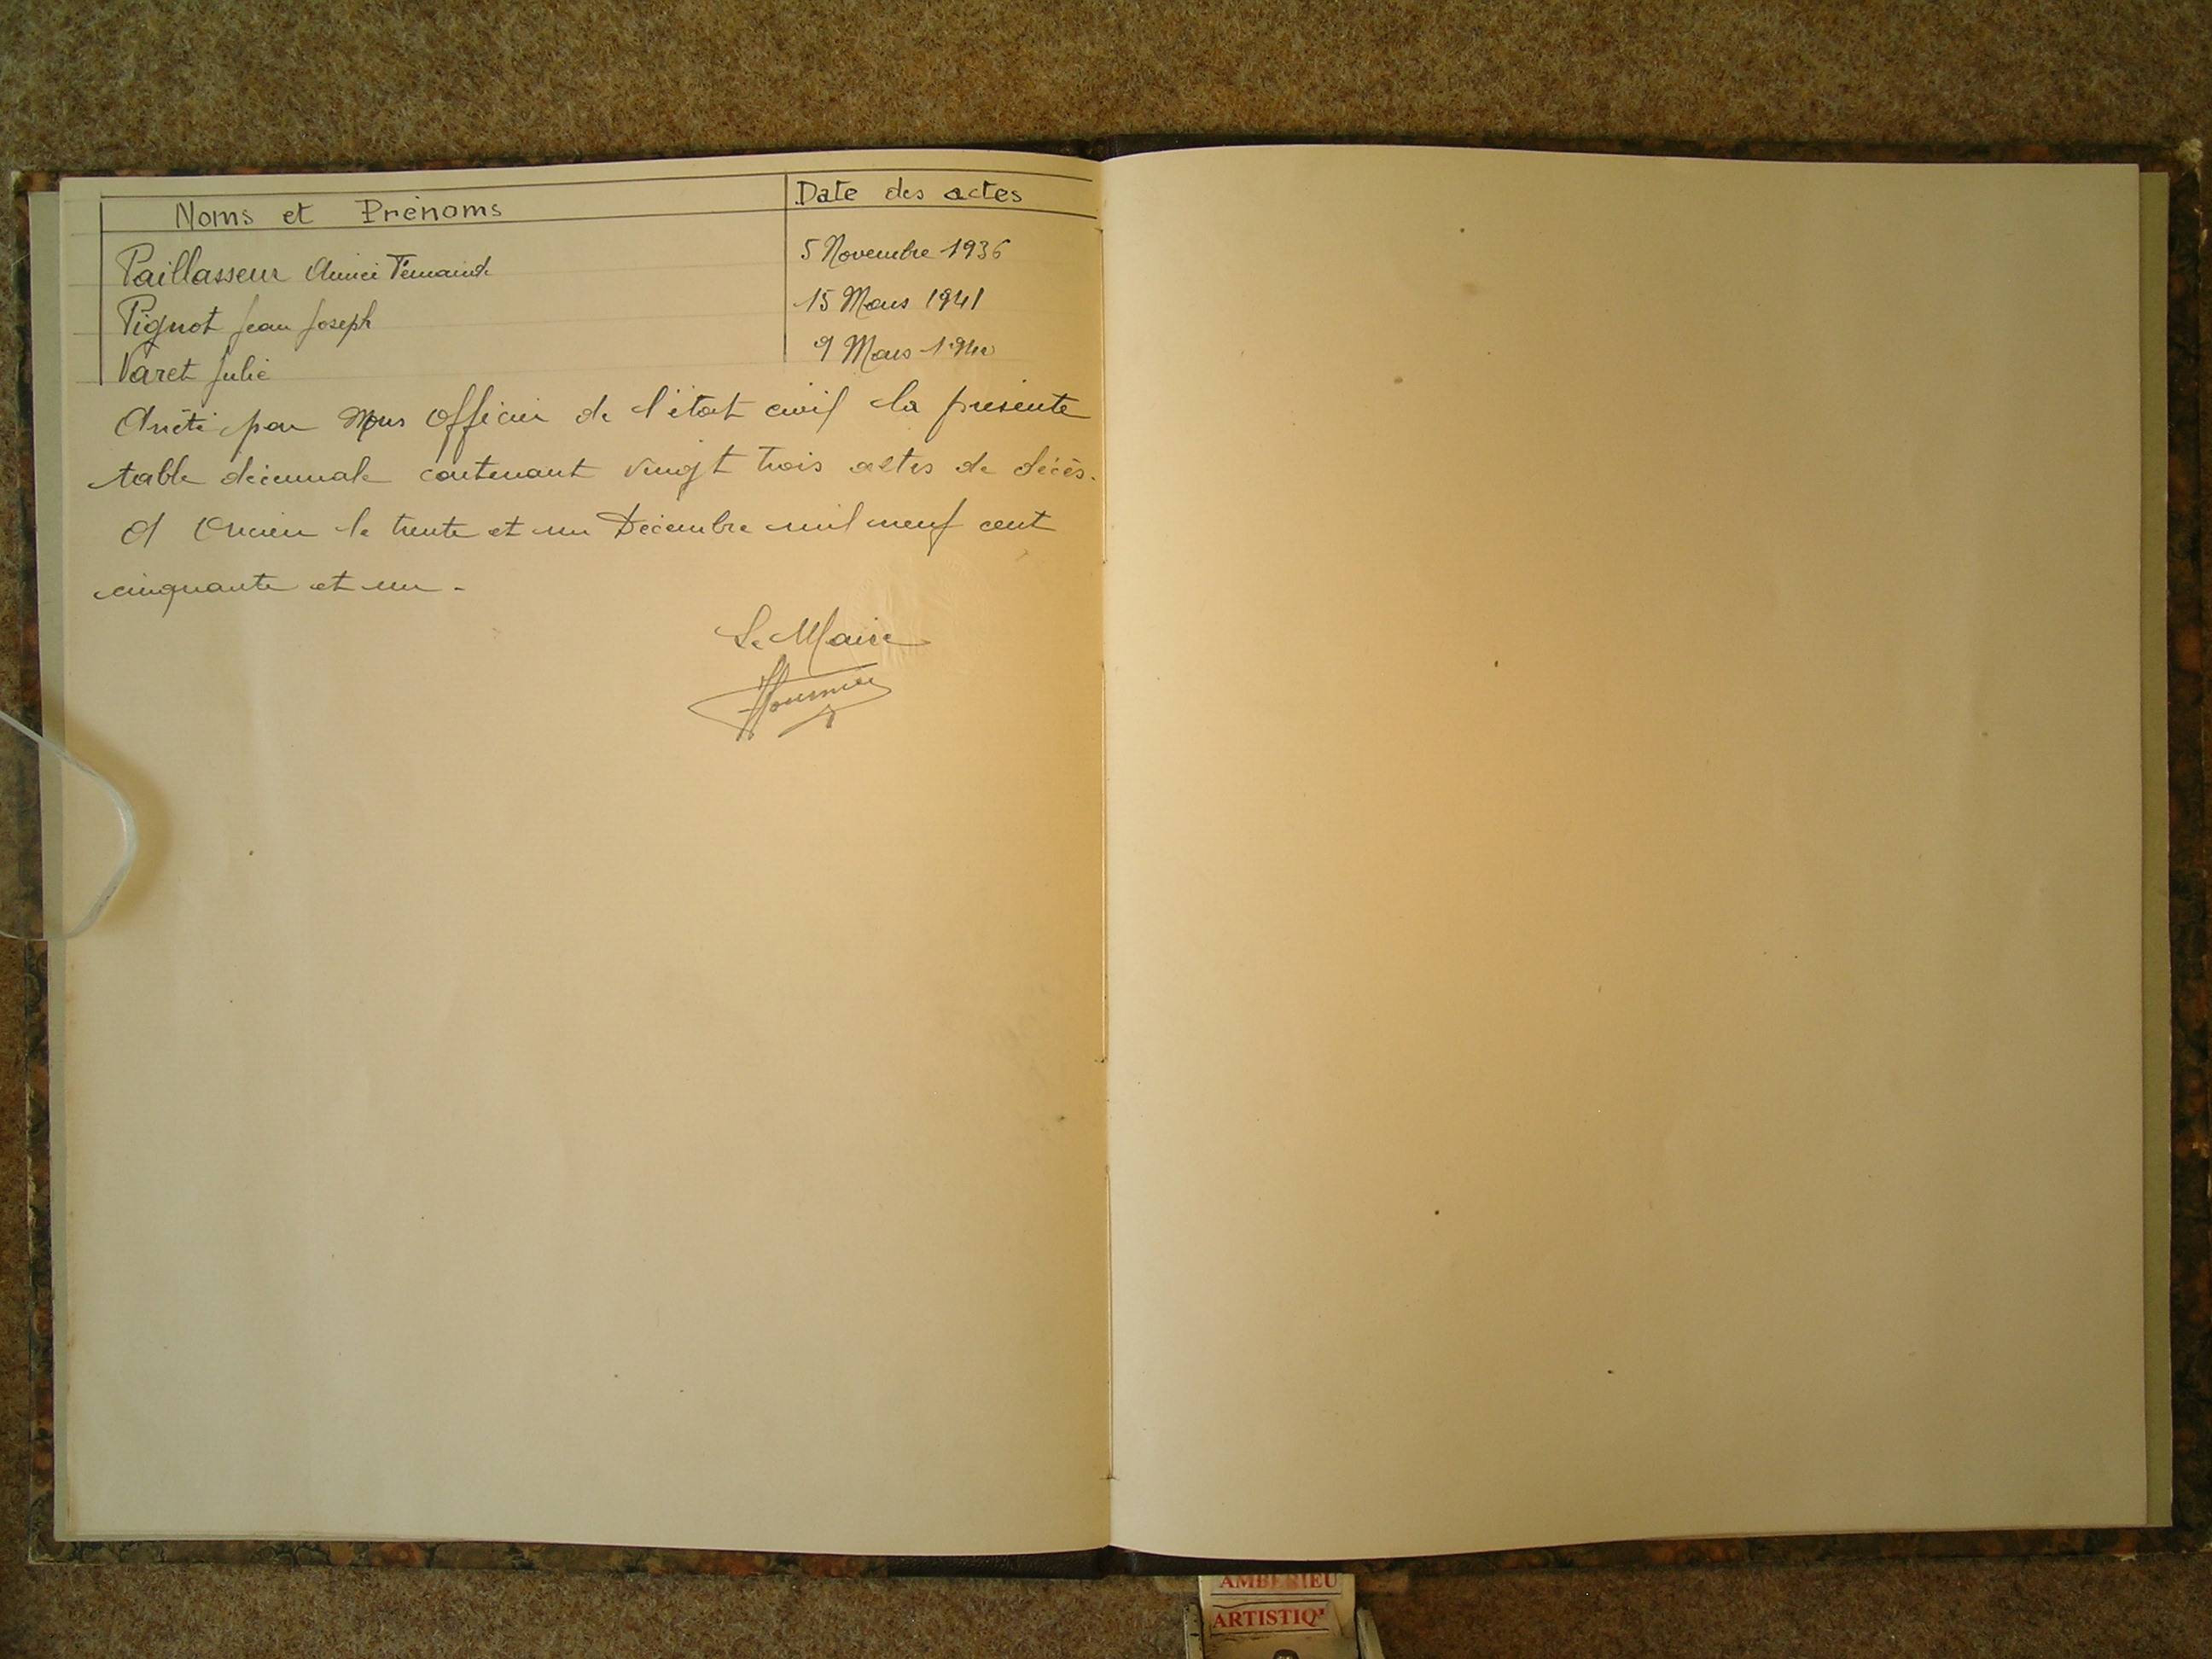 Noms et Prénoms Date des actes
Paillasseur Aimé Fernand 5 Novembre 1936
Pignot Jean Joseph 15 Mars 1941
Varet Julie 9 Mars 1940
Arrêté par Nous Officier de l'état civil la présente
table décennale contenant vingt trois actes de décès.
A le trente et un Décembre mil neuf cent
cinquante et un -
Le Maire
AMBERIEU
ARTISTIQ'